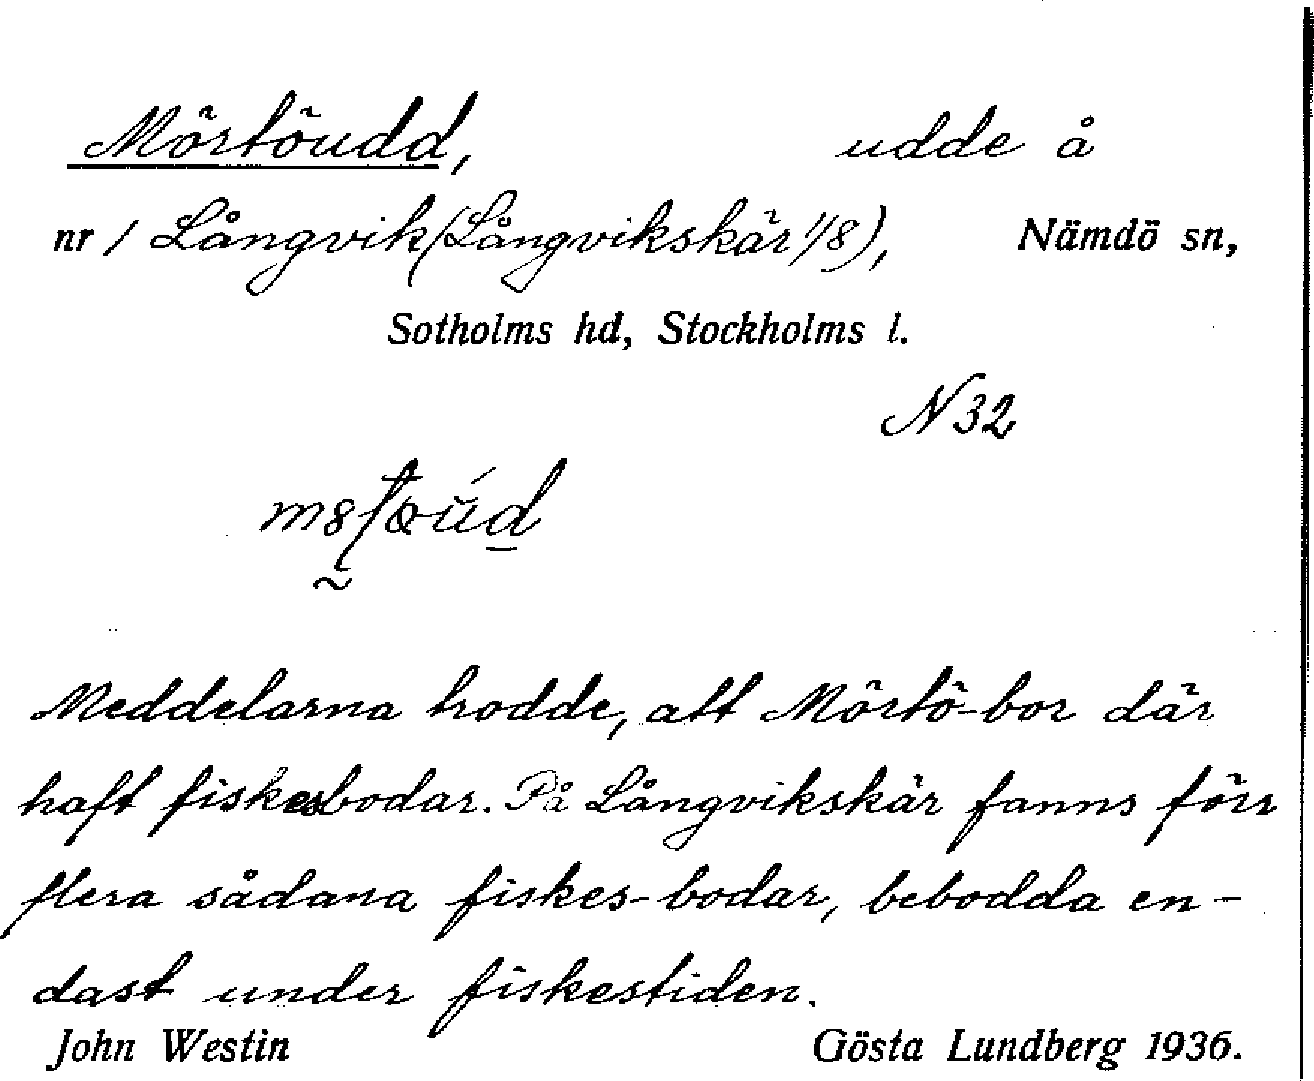 Mörtöudd, udde å
nr 1 Långvik (Långvikskär 1/8), Nämdö sn,
Sotholms hd, Stockholms l.
N 32
Meddelarna trodde, att Mörtö-bor där
haft fiskesbodar. På Långvikskär fanns förr
flera sådana fiskes-bodar, bebodda en-
dast under fiskestiden.
John Westin Gösta Lundberg 1936.